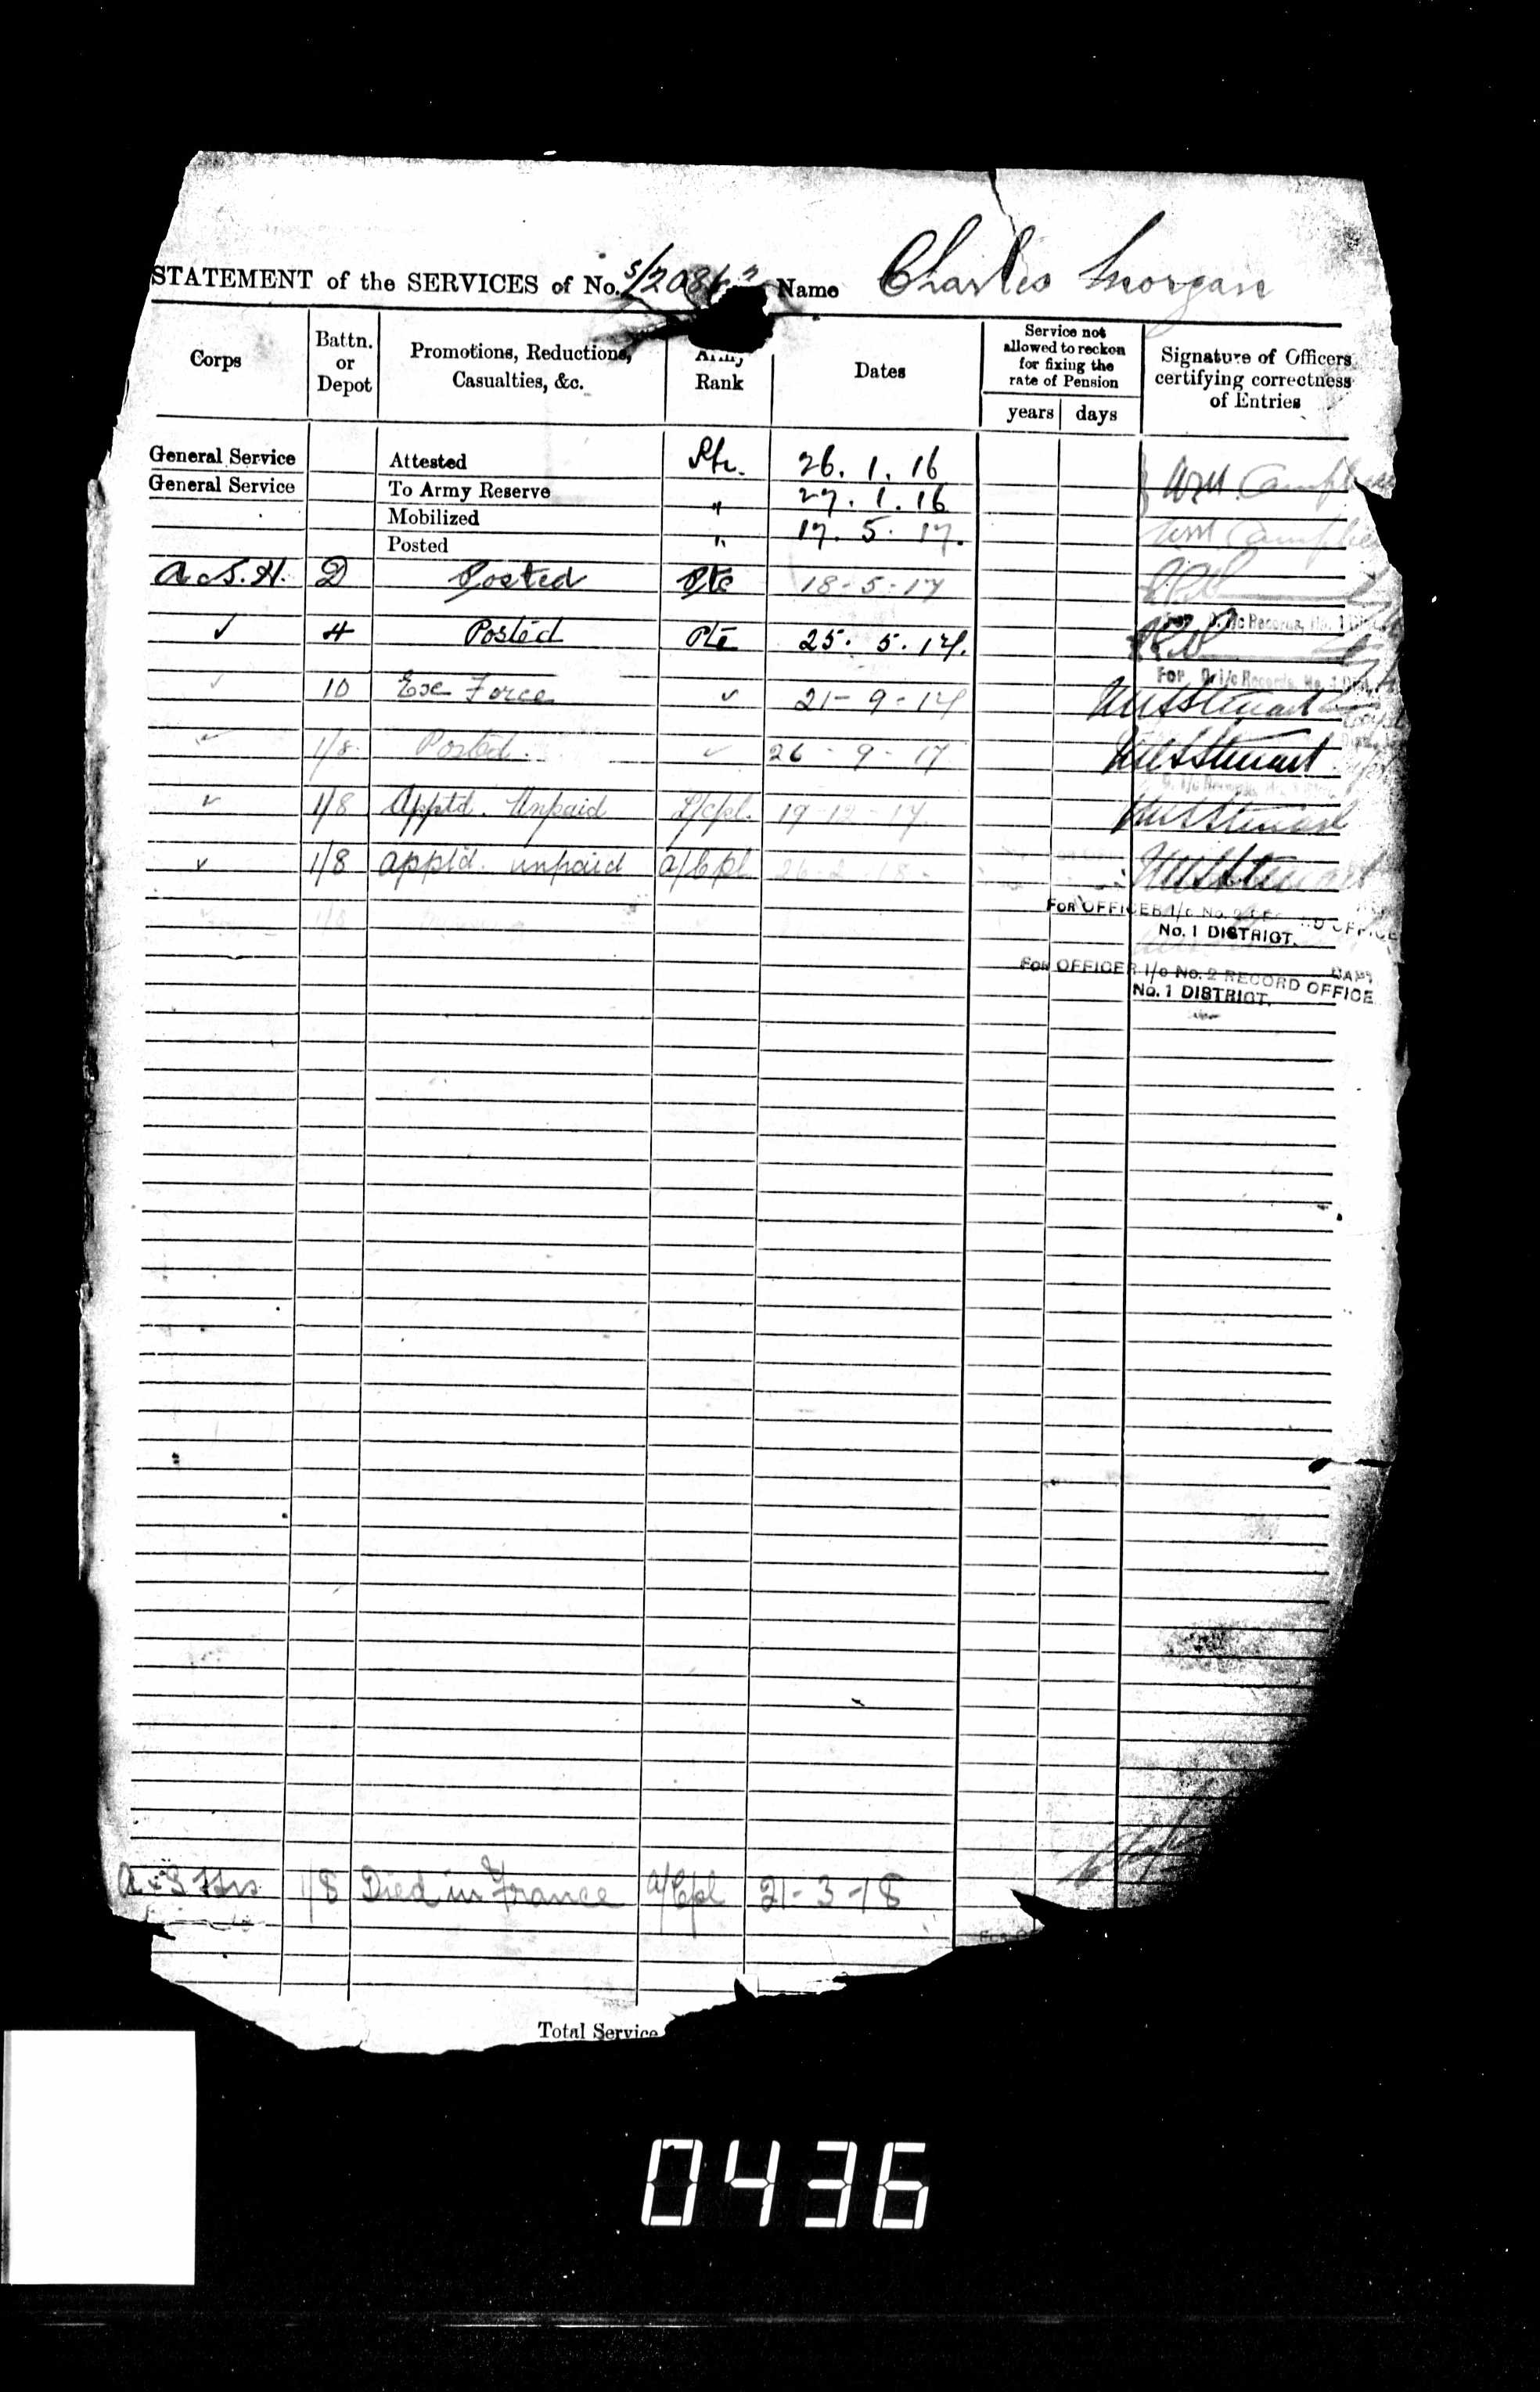 STATEMENT of the SERVICES of No. S/208 Name Charles Morgan
Corps
Battn. or Depot
Promotions, Reductions, Casualties, &c.
Army Rank
Dates
Service not allowed to reckon for fixing the rate of Pension
years days
Signature of Officers certifying correctness of Entries
General Service Attested Pte. 26. 1. 16 Wm. Campbell
General Service To Army Reserve " 27. 1. 16
Mobilized " 17. 5. 17. Wm Campbell
Posted "
A. & S. H. D Posted Pte 18-5-17
For O. i/c Records, No. 1 Dist.
✓ 4 Posted Pte 25. 5. 17.
For O. i/c Records, No. 1 Dist.
✓ 10 Exe Force ✓ 21-9-17 Stewart
✓ 1/8 Posted. ✓ 26-9-17 Stewart
✓ 1/8 Apptd. Unpaid L/Cpl. 19-12-17 Stewart
✓ 1/8 apptd. unpaid A/Cpl 26-2-18 Stewart
FOR OFFICER i/c No. 2 RECORD OFFICE
No. 1 DISTRICT.
FOR OFFICER i/c No. 2 RECORD OFFICE
No. 1 DISTRICT.
A & S Hrs 1/8 Died in France A/Cpl 21-3-18
Total Service
0436